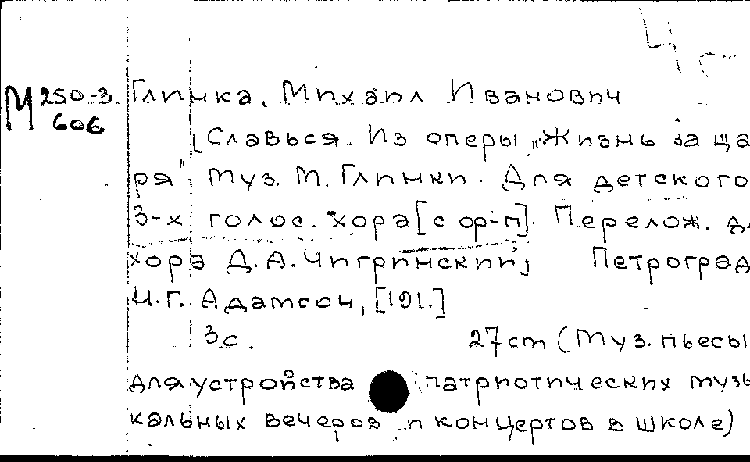 М 250-3. Глинка. Михаил Иванович
606
[Славься. Из оперы „Жизнь за ца
ря" Муз. М. Глинки. Для детского
3-х голос. хора [с ор-п] Перелож. дл
хора Д.А. Чигринский, Петроград
Н.Г. Адамсон, [191.]
3с. 27cm (Муз. пьесы
для устройства патриотических музы
кальных вечеров и концертов в школе)